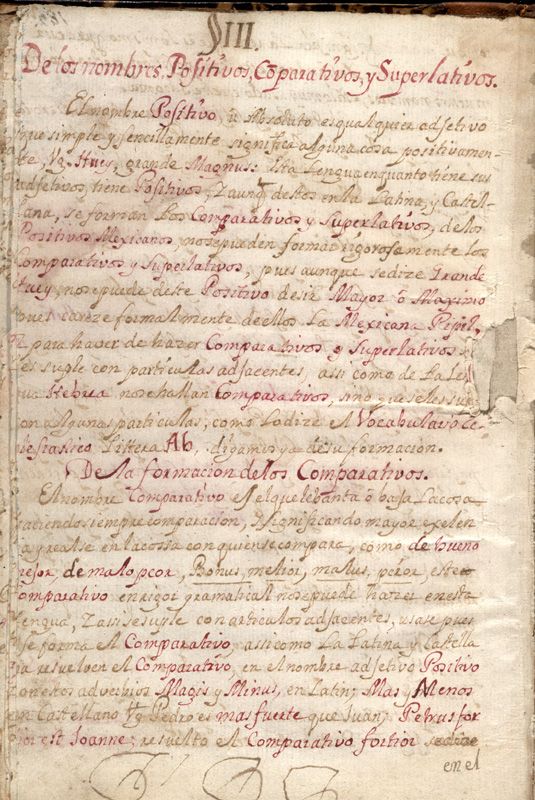 §III
De los nombres, Positivos, Cõparativos, y Superlativos.
El nombre Positivo, ũ Absoluto es qualquier adjetivo
que simple y sencillamente significa alguna cosa positivamen-
te, Vg. Huey, grande Magnus: Esta Lengua en quanto tiene sus
adjetivos, tiene Positivos, y aunq destos en la Latina, y Castel-
lana, se forman Los Comparativos y Superlativos, de los
Positivos Mexicanos, no se pueden formar rigorosamente los
Comparativos y Superlativos, pues aunque se dize Grande
Huey, no se puede deste Positivo desir Mayor ò Maximo
pues careze formalmente de ellos La Mexicana
para haver de hazer Comparativos y Superlativos
suple con particulas adjacentes, assi como de La Len
gua Hebrea no se hallan Comparativos, sino que seles
con algunas particulas, como Lo dize el Vocabulario Ec
lesiastico Littera Ab, digamos ya de su formacion.
De la formacion de los Comparativos.
El nombre Comparativo es el que lebanta ò baja La cosa
haciendo siempre comparacion, y significando mayor exelen
a y realse en la cossa con quien se compara, como de bueno
mejor, de malo peor, Bonus, melior, malus, peior, este
Comparativo en rigor gramatical no se puede hazer en esta
Lengua, y assi se suple con articulos adjacentes, usase pues
se forma el Comparativo, assi como La Latina y Castella
na resuelven el Comparativo, en el nombre adjetivo Positivo
con estos adverbios Magis y Minus, en Latin; Mas y Menos
en Castellano Vg Pedro es mas fuerte que Juan; Petrus for
tior est Ioanne; resuelto el Comparativo fortior se dize
en el